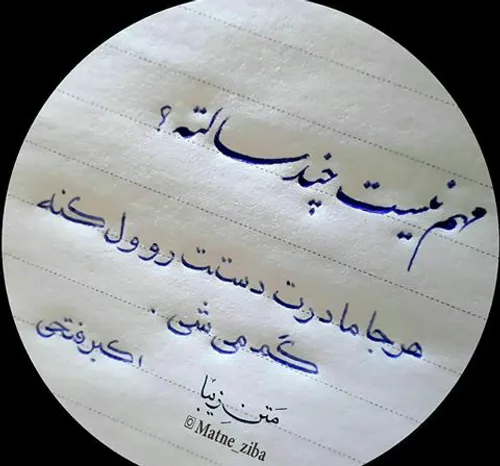 مهم نیست چند سالته ؟
هرجا مادرت دستت رو ول کنه
گم می شی .
اکبر فتحی
متن زیبا
© Matne_ziba